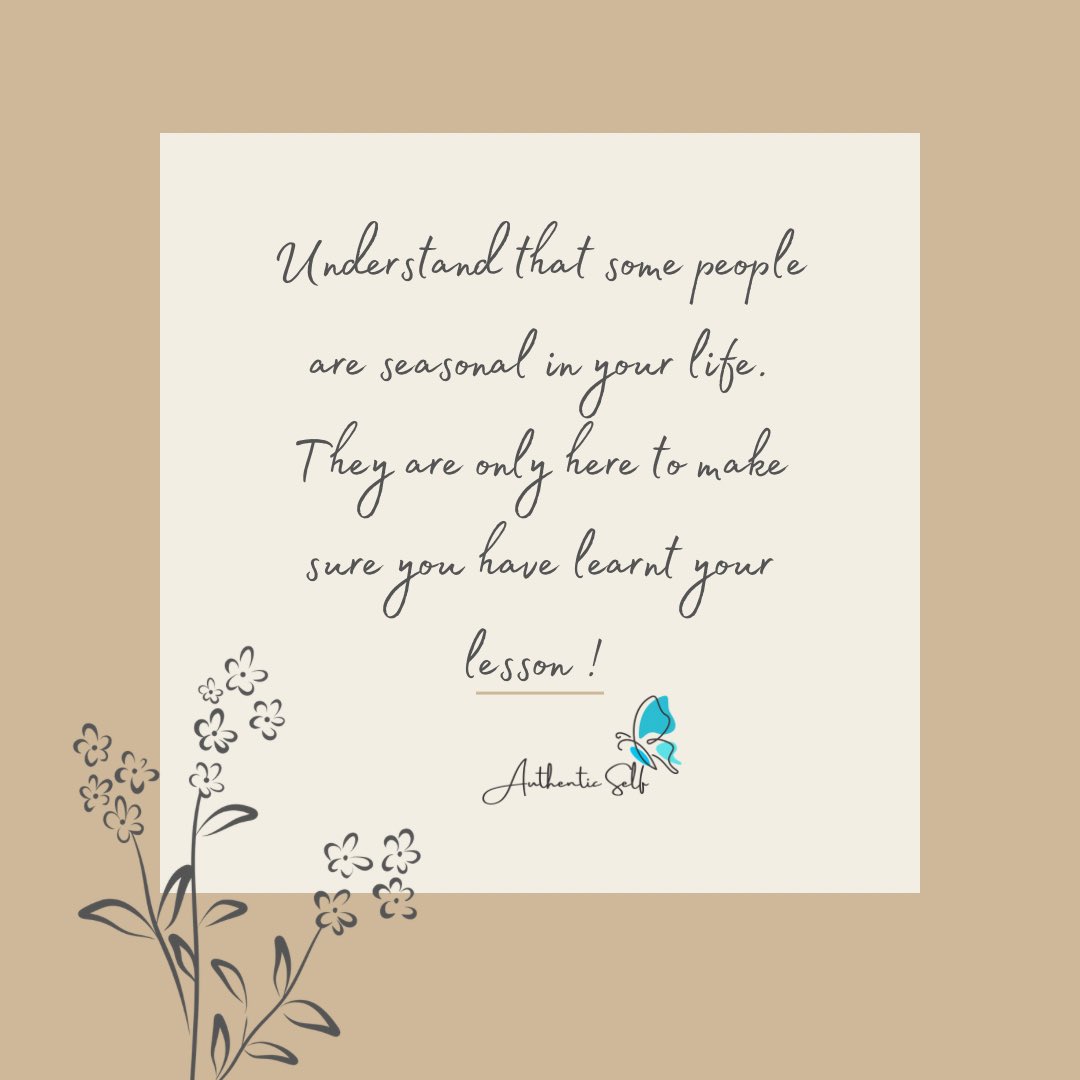 Understand that some people
are seasonal in your life.
They are only here to make
sure you have learnt your
lesson !
Authentic Self